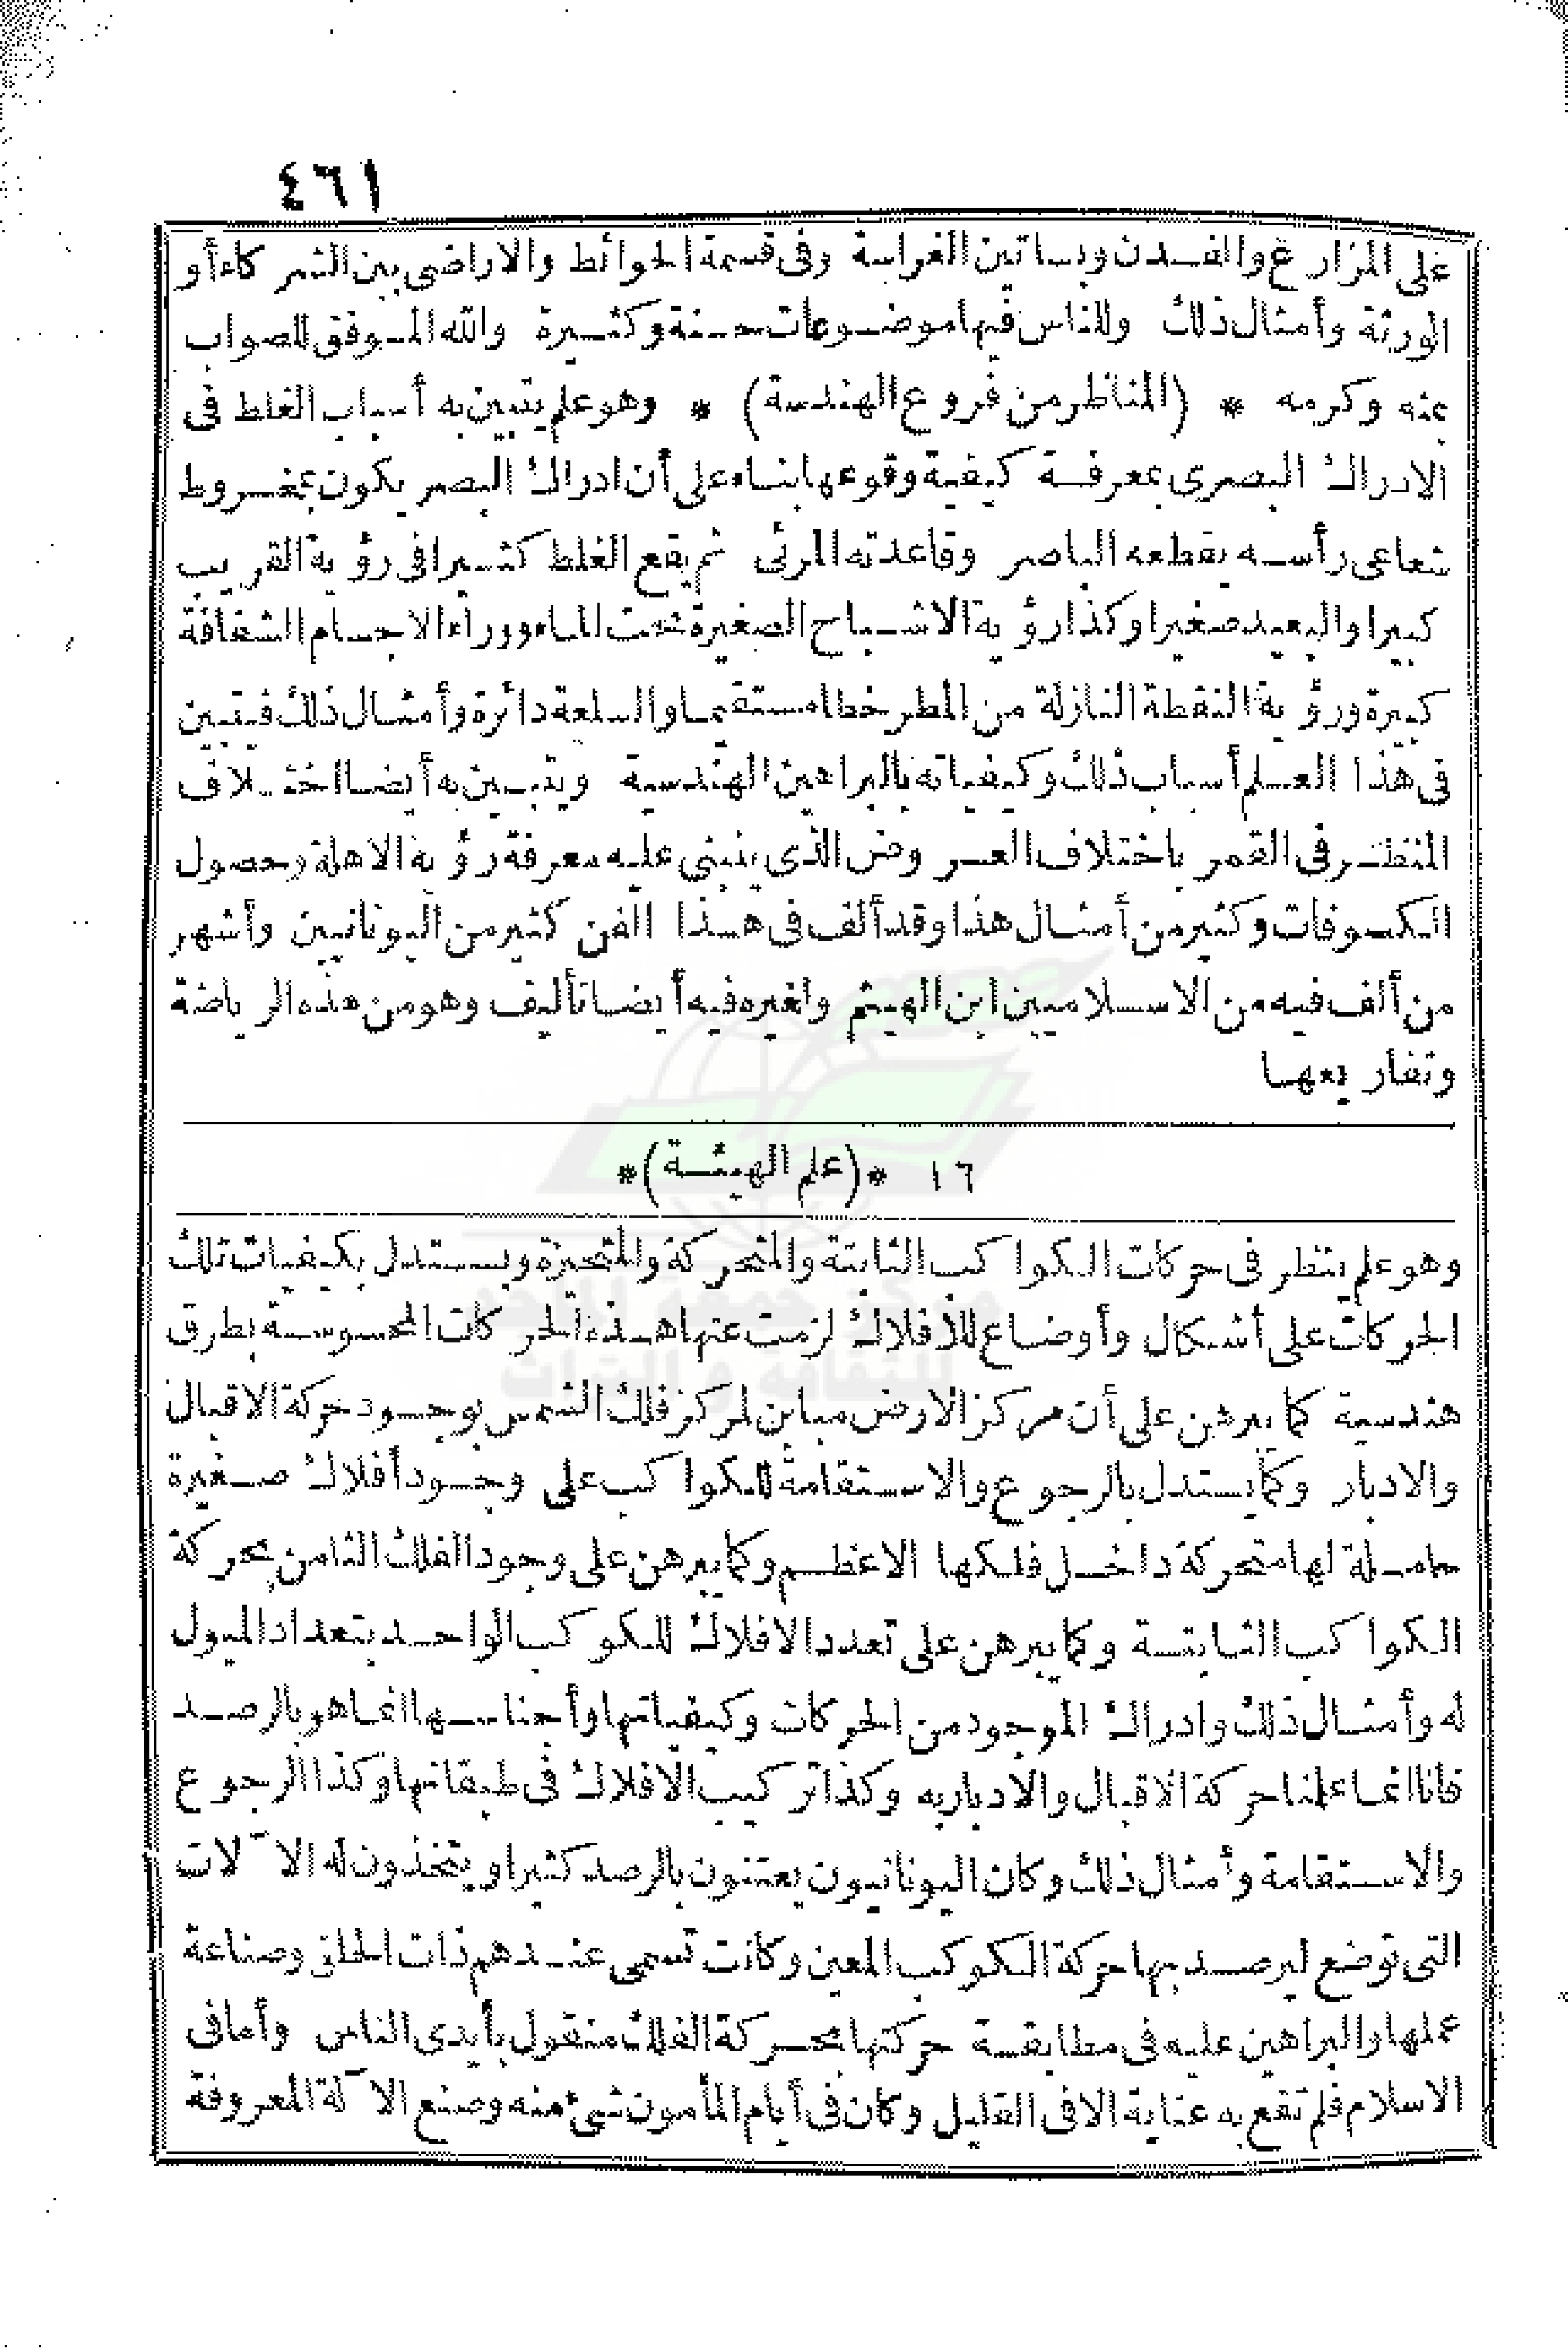 ٤٦١
على المزارع والفدن وبساتين الغراسة وفى قسمة الحوائط والاراضى بين الشركاء أو
الورثة وأمثال ذلك وللناس فيها موضوعات حسنة وكثيرة والله الموفق للصواب
بمنه وكرمه * (المناظر من فروع الهندسة) * وهو علم يتبين به أسباب الغلط فى
الادراك البصرى بمعرفة كيفية وقوعها بناء على أن ادراك البصر يكون بمخروط
شعاعى رأسه يقطعه الباصر وقاعدته المرئى ثم يقع الغلط كثيرا فى رؤية القريب
كبيرا والبعيد صغيرا وكذا رؤية الاشباح الصغيرة تحت الماء ووراء الاجسام الشفافة
كبيرة ورؤية النقطة النازلة من المطر خطا مستقيما والسلعة دائرة وأمثال ذلك فيتبين
فى هذا العلم أسباب ذلك وكيفياته بالبراهين الهندسية ويتبين به أيضا اختلاف
المنظر فى القمر باختلاف العروض الذى ينبنى عليه معرفة رؤية الاهلة وحصول
الكسوفات وكثير من أمثال هذا وقد ألف فى هذا الفن كثير من اليونانيين وأشهر
من ألف فيه من الاسلاميين ابن الهيثم ولغيره فيه أيضا تأليف وهو من هذه الرياضة
وتفاريعها
١٦ *(علم الهيئة)*
وهو علم ينظر فى حركات الكواكب الثابتة والمتحركة والمتحيزة ويستدل بكيفيات تلك
الحركات على أشكال وأوضاع للأفلاك لزمت عنها هذه الحركات المحسوسة بطرق
هندسية كما يبرهن على أن مركز الارض مباين لمركز فلك الشمس بوجود حركة الاقبال
والادبار وكما يستدل بالرجوع والاستقامة للكواكب على وجود أفلاك صغيرة
حاملة لها متحركة داخل فلكها الاعظم وكما يبرهن على وجود الفلك الثامن بحركة
الكواكب الثابتة وكما يبرهن على تعدد الافلاك للكوكب الواحد بتعداد الميول
له وأمثال ذلك وادراك الموجود من الحركات وكيفياتها وأجناسها انما هو بالرصد
فانا انما علمنا حركة الاقبال والادبار به وكذا تركيب الافلاك فى طبقاتها وكذا الرجوع
والاستقامة وأمثال ذلك وكان اليونانيون يعتنون بالرصد كثيرا ويتخذون له الآلات
التى توضع ليرصد بها حركة الكوكب المعين وكانت تسمى عندهم ذات الحلق وصناعة
عملها والبراهين عليه فى مطابقة حركتها بحركة الفلك منقول بأيدى الناس وأما فى
الاسلام فلم تقع به عناية الا فى القليل وكان فى أيام المأمون شئ منه وصنع الآلة المعروفة
مركز جمعة الماجد
للثقافة و التراث